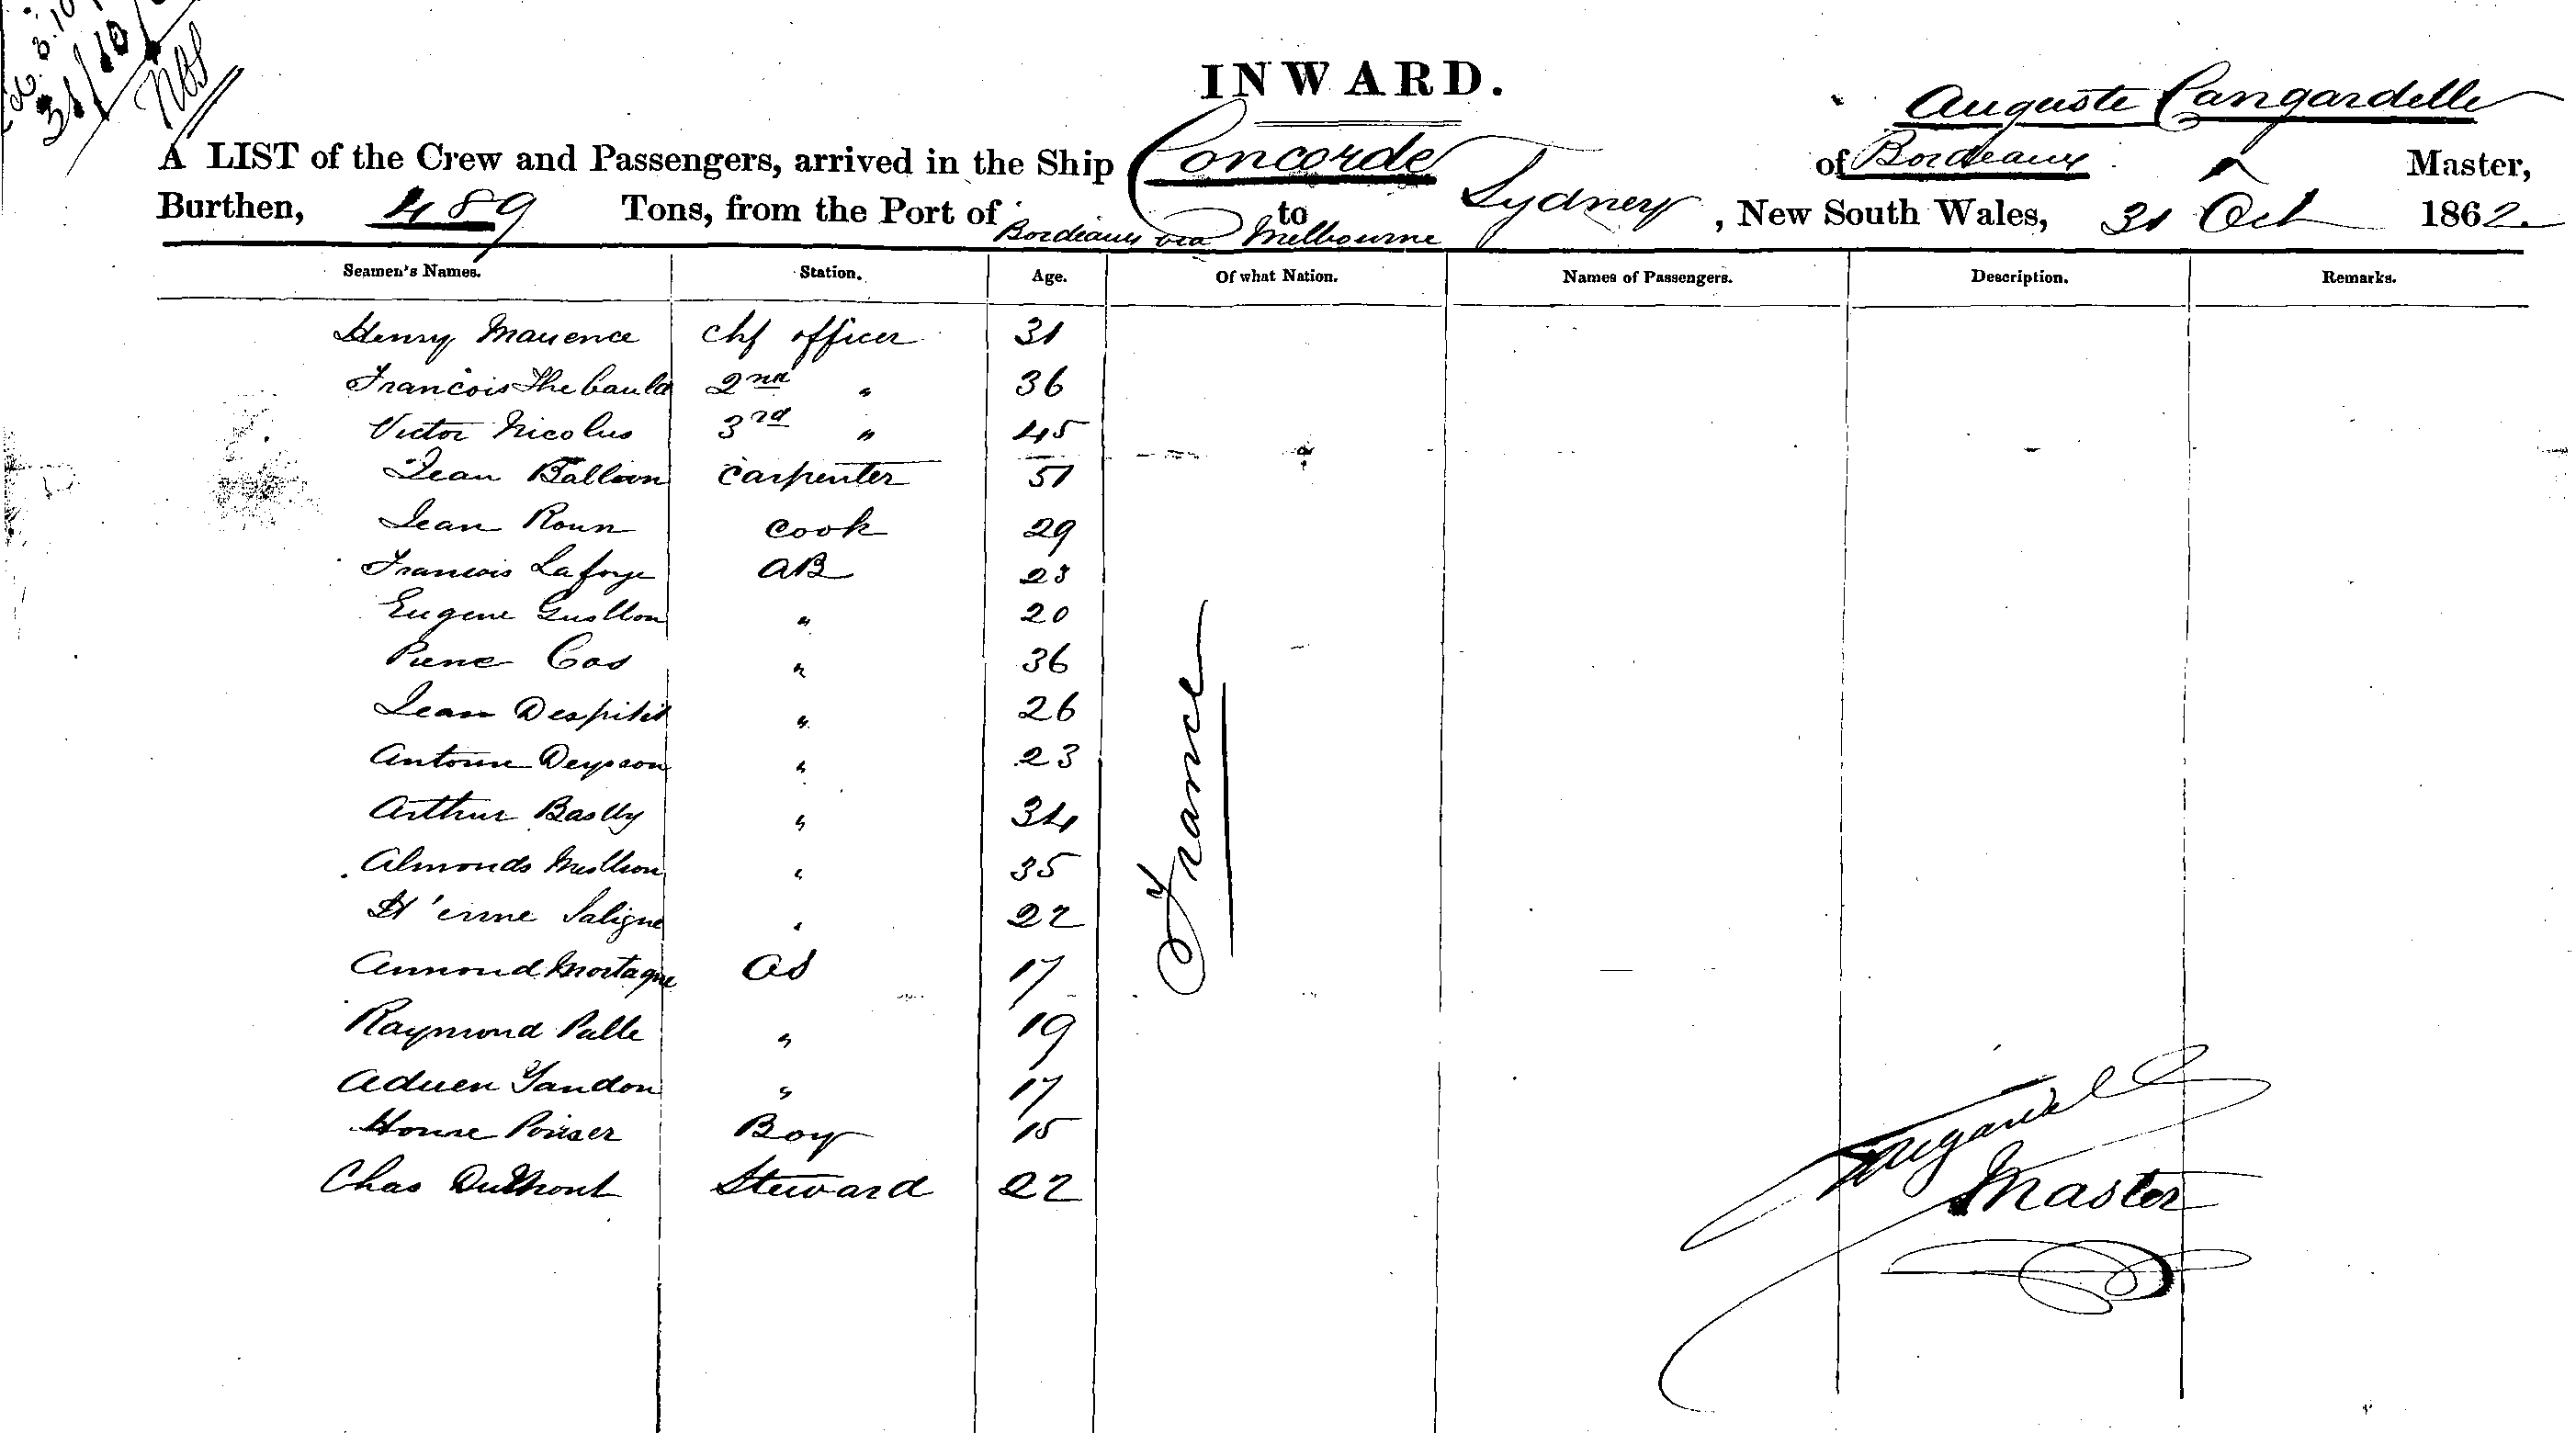 31/10
INWARD.
Auguste Cangardelle
A LIST of the Crew and Passengers, arrived in the Ship Concorde of Bordeaux Master,
Burthen, 489 Tons, from the Port of Bordeaux via Melbourne to Sydney, New South Wales, 31 Oct 1862
Seamen's Names. Station. Age. Of what Nation. Names of Passengers. Description. Remarks.
Henry Mauence chf officer 31
Francois Thebauld 2nd " 36
Victor Nicolus 3rd " 45
Jean Balloon carpenter 51
Jean Roun cook 29
Francois Laforge AB 23
Eugene Guollon " 20
Pierre Cas " 36
Jean Despitit " 26
Antoine Deysson " 23
Arthur Baslly " 34
Almonds Mullion " 35
St'enne Saligne " 22
Armond Mortagne OS 17
Raymond Palle " 19
Aduen Yandon " 17
Honne Poirser Boy 15
Chas Duthont Steward 22
France
Cangardelle
Master